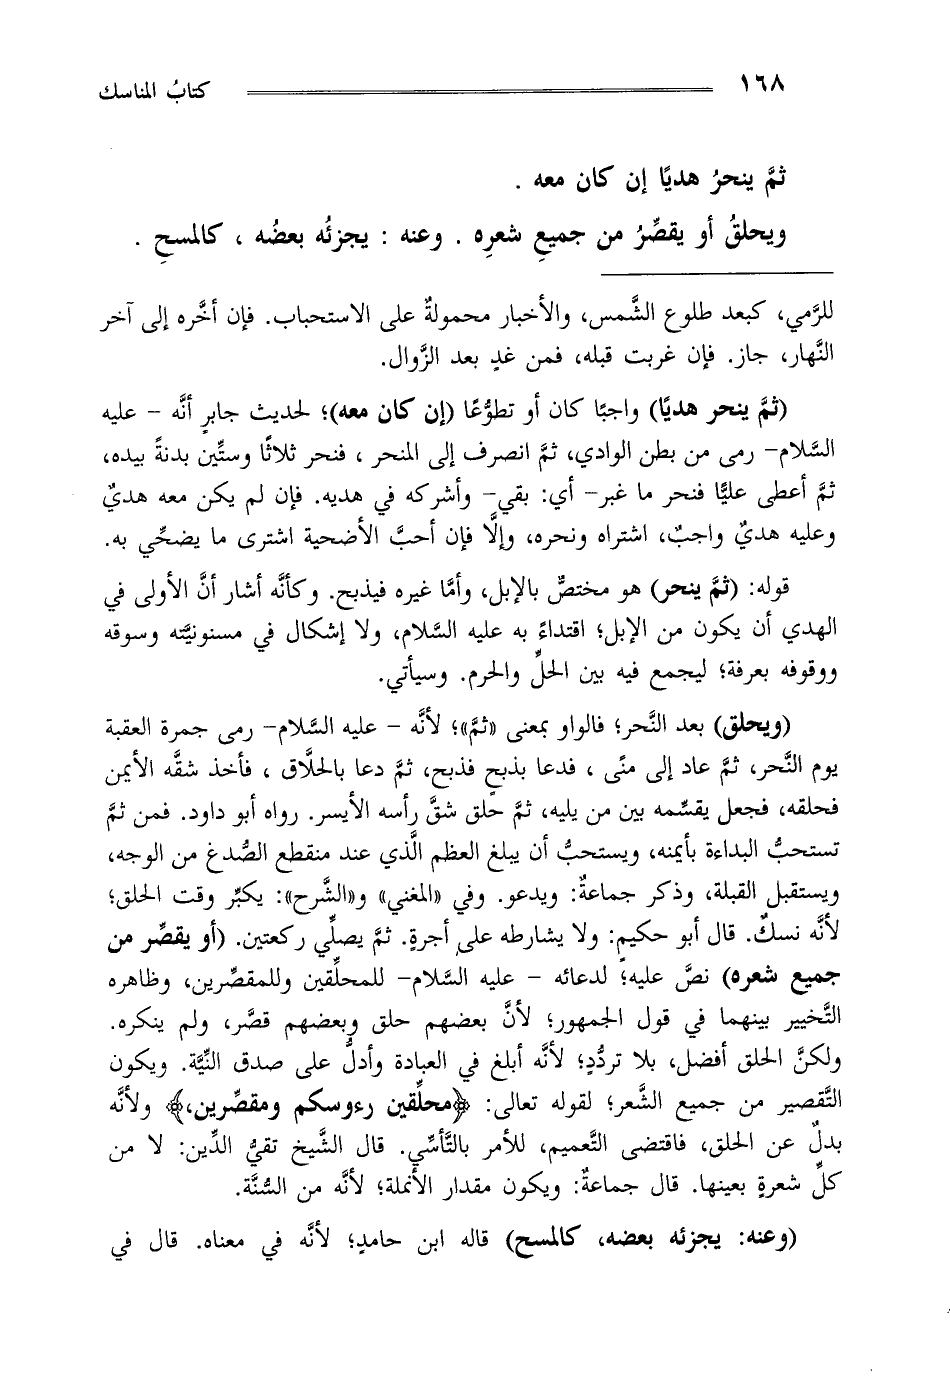 ١٦٨ كتابُ المناسك
ثمَّ ينحرُ هديًا إن كان معه .
ويحلقُ أو يقصِّرُ من جميعِ شعرِه . وعنه : يجزئُه بعضُه ، كالمسحِ .
للرَّمي، كبعد طلوع الشَّمس، والأخبار محمولةٌ على الاستحباب. فإن أخَّره إلى آخر
النَّهار، جاز. فإن غربت قبله، فمن غدٍ بعد الزَّوال.
(ثمَّ ينحر هديًا) واجبًا كان أو تطوُّعًا (إن كان معه)؛ لحديث جابرٍ أنَّه – عليه
السَّلام– رمى من بطن الوادي، ثمَّ انصرف إلى المنحر ، فنحر ثلاثًا وستِّين بدنةً بيده،
ثمَّ أعطى عليًّا فنحر ما غبر– أي: بقي– وأشركه في هديه. فإن لم يكن معه هديٌ
وعليه هديٌ واجبٌ، اشتراه ونحره، وإلَّا فإن أحبَّ الأضحية اشترى ما يضحِّي به.
قوله: (ثمَّ ينحر) هو مختصٌّ بالإبل، وأمَّا غيره فيذبح. وكأنَّه أشار أنَّ الأولى في
الهدي أن يكون من الإبل؛ اقتداءً به عليه السَّلام، ولا إشكال في مسنونيَّته وسوقه
ووقوفه بعرفة؛ ليجمع فيه بين الحلِّ والحرم. وسيأتي.
(ويحلق) بعد النَّحر؛ فالواو بمعنى «ثمَّ»؛ لأنَّه – عليه السَّلام– رمى جمرة العقبة
يوم النَّحر، ثمَّ عاد إلى منًى ، فدعا بذبحٍ فذبح، ثمَّ دعا بالحلَّاق ، فأخذ شقَّه الأيمن
فحلقه، فجعل يقسِّمه بين من يليه، ثمَّ حلق شقَّ رأسه الأيسر. رواه أبو داود. فمن ثمَّ
تستحبُّ البداءة بأيمنه، ويستحبُّ أن يبلغ العظم الَّذي عند منقطع الصُّدغ من الوجه،
ويستقبل القبلة، وذكر جماعةٌ: ويدعو. وفي «المغني» و«الشَّرح»: يكبِّر وقت الحلق؛
لأنَّه نسكٌ. قال أبو حكيمٍ: ولا يشارطه على أجرةٍ. ثمَّ يصلِّي ركعتين. (أو يقصِّر من
جميع شعره) نصَّ عليه؛ لدعائه – عليه السَّلام– للمحلِّقين وللمقصِّرين، وظاهره
التَّخيير بينهما في قول الجمهور؛ لأنَّ بعضهم حلق وبعضهم قصَّر، ولم ينكره.
ولكنَّ الحلق أفضل، بلا تردُّدٍ؛ لأنَّه أبلغ في العبادة وأدلُّ على صدق النِّيَّة. ويكون
التَّقصير من جميع الشَّعر؛ لقوله تعالى: ﴿محلِّقين رءوسكم ومقصِّرين،﴾ ولأنَّه
بدلٌ عن الحلق، فاقتضى التَّعميم، للأمر بالتَّأسِّي. قال الشَّيخ تقيُّ الدِّين: لا من
كلِّ شعرةٍ بعينها. قال جماعةٌ: ويكون مقدار الأنملة؛ لأنَّه من السُّنَّة.
(وعنه: يجزئه بعضه، كالمسح) قاله ابن حامدٍ؛ لأنَّه في معناه. قال في